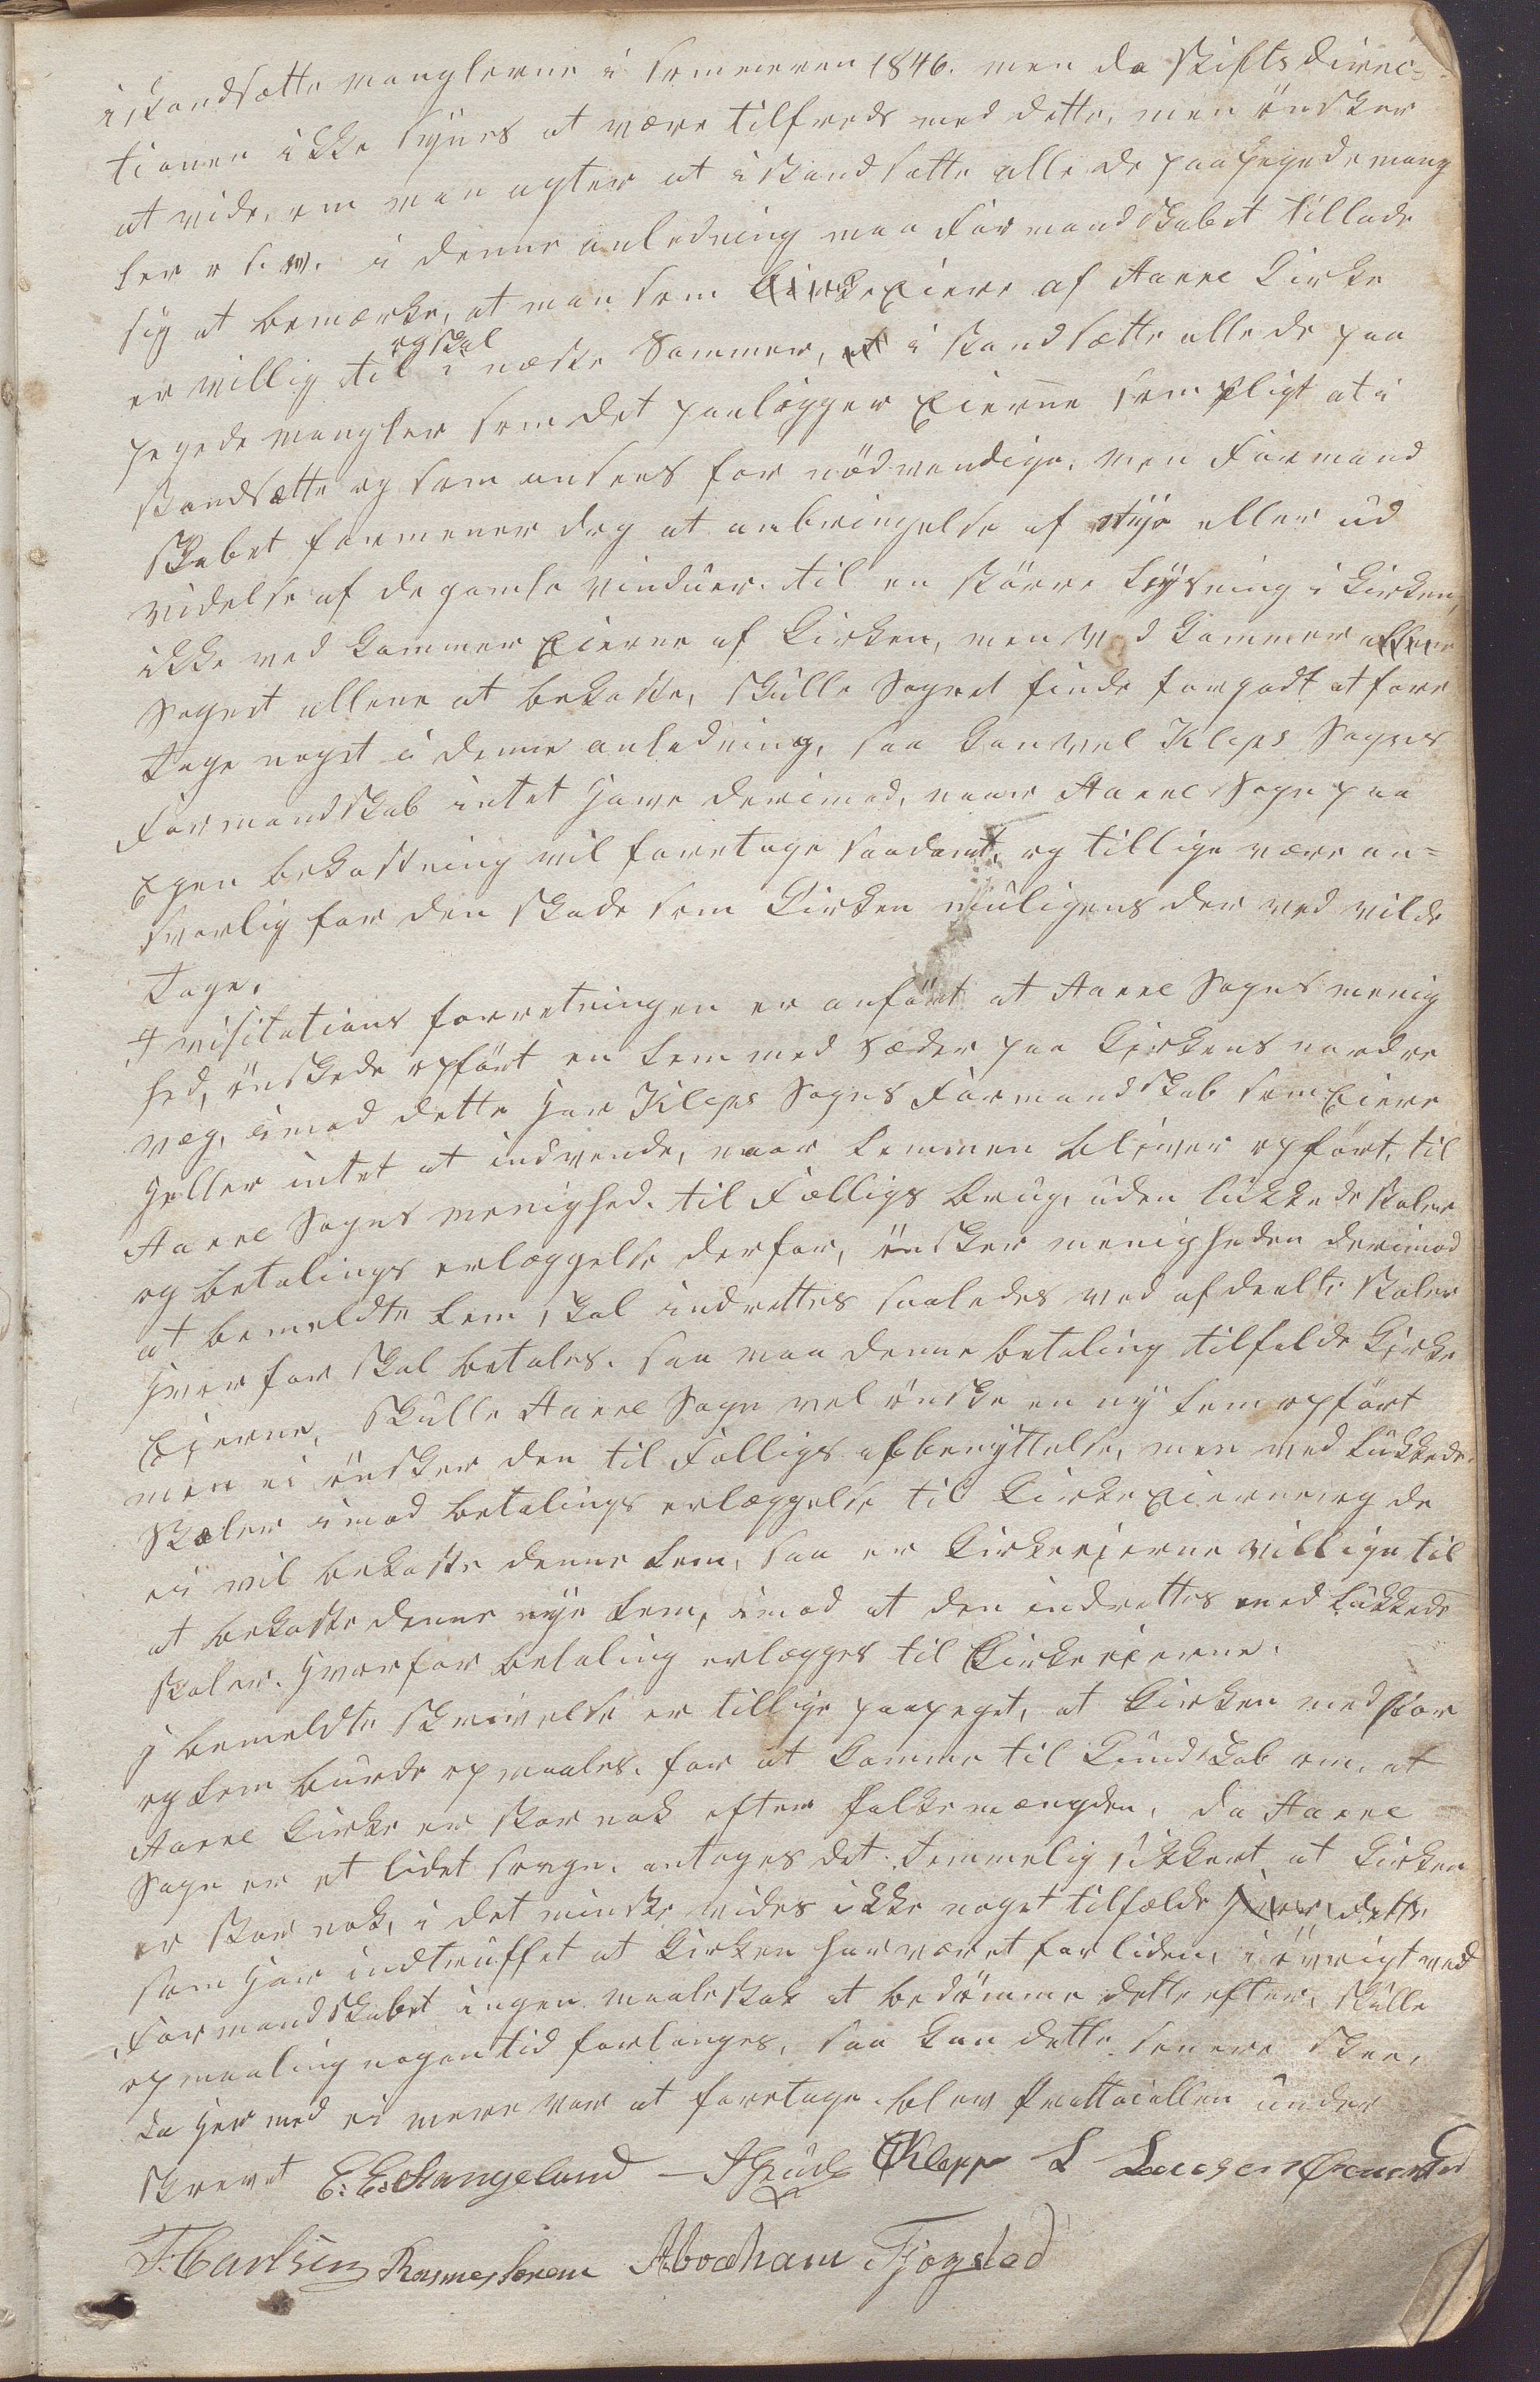 istandsætte manglerne i sommeren 1846. men da Stiftsdirec-
tionen ikke synes at være tilfreds med dette, men ønsker
at vide, om man agter at istandsætte alle de paapegede mang
ler o s. v. i denne anledning maa Formandskabet tillade
sig at bemærke, at man som Kirkeeiere af Aarre Kirke
er villig til og skal i næste Sommer, at i standsætte alle de paa
pegede mangler som det paaligger Eierne som pligt at i
standsætte og som ansees for nødvendige, men Formand
skabet formener dog at anbringelse af nye eller ud
videlse af de gamle vinduer til en større lysning i Kirken,
ikke ved kommer Eierne af Kirken, men ved kommer
Sognet allene at bekoste, skulle Sognet finde for godt at fore
tage noget i denne anledning, saa kan vel Kleps Sogns
Formandskab intet have derimod, naar Aarre Sogn paa
Egen bekostning vil foretage saadant, og tillige være an-
svarlig for den skade som Kirken muligens der ved vilde
tage.
I visitations forretningen er anført at Aarre Sogns menig
hed, ønskede opført en Lem med Sæder paa Kirkens nordre
væg, imod dette har Kleps Sogns Formandskab som Eiere
heller intet at indvende, naar Lemmen bliver opført, til
Aarre Sogns menighed til Fælligs brug, uden lukkede stoler
og betalings erlæggelse derfor, ønsker menigheden derimod
at bemeldte Lem skal indrettes saaledes ved afdeelte stoler
hvor for skal betales. saa maa denne betaling tilfalde Kirke
Eierne, skulle Aarre Sogn vel ønske en ny Lem opført
men ei ønsker den til Fælligs afbenyttelse, men ved lukkede
Stoler imod betalings erlæggelse til Kirkeeierne og de
ei vil bekoste denne Lem, saa er Kirkeeierne villige til
at bekoste denne nye Lem, imod at den indrettes med lukkede
stoler. hvorfor betaling erlægges til Kirkeeierne.
I bemeldte skrivelse er tillige paapeget, at Kirken med Kor
og Lem burde opmaales. for at komme til Kundskab om, at
Aarre Kirke er stor nok efter folkemængden, da Aarre
Sogn er et lidet sogn. antages det temmelig sikkert at Kirken
er stor nok, i det minste vides ikke noget tilfælde
som har indtruffet at Kirken har været for liden, i øvrigt ved
Formandskabet ingen maalestok at bedømme dette efter, skulle
opmaaling nogen tid forlanges, saa kan dette senere skee,
da her med ei mere var at foretage blev Protocollen under
skrevet E. E. Stangeland Klepp L Laugesen
T. Carlsen Rasmus Serem Abraham Tjøgsted